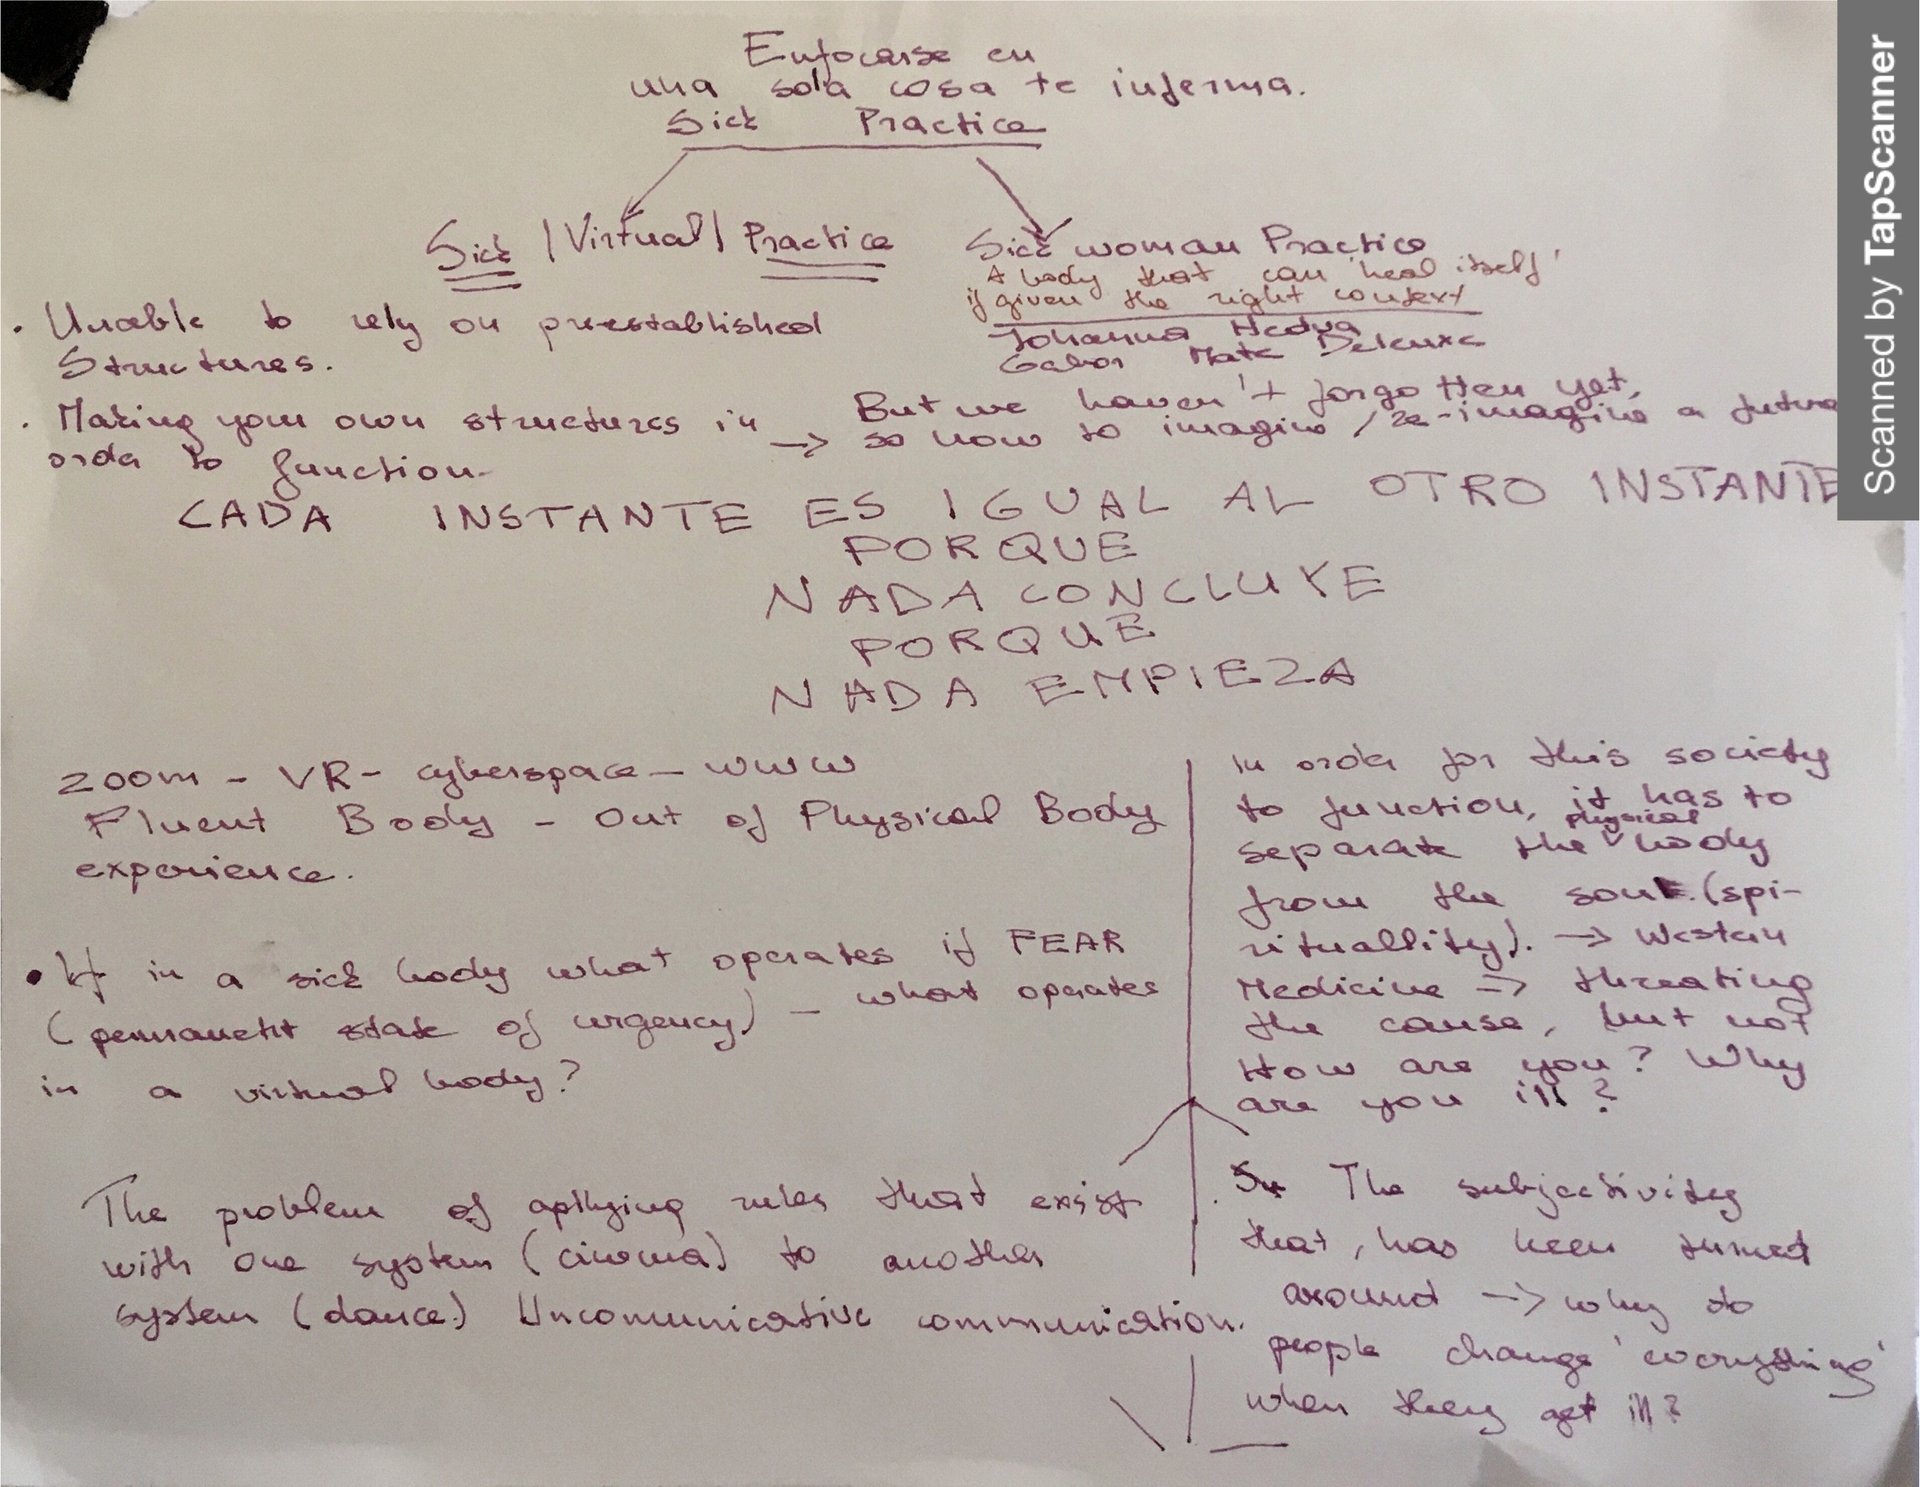 Enfocarse en
una sola cosa te inferma.
Sick Practice
Sick |Virtual| Practice
Sick woman Practice
A body that can 'heal itself'
if given the right context
Johanna Hedva
Gabor Mate Deleuxe
. Unable to rely on pre-established
structures.
. Making your own structures in
order to function-
→ But we haven't forgotten yet,
so how to imagine / re-imagine a future
CADA INSTANTE ES IGUAL AL OTRO INSTANTE
PORQUE
NADA CONCLUYE
PORQUE
NADA EMPIEZA
Zoom - VR - cyberspace - www
Fluent Body - Out of Physical Body
experience.
• If in a sick body what operates if FEAR
(permanent state of urgency) - what operates
in a virtual body?
The problem of apllying rules that exist
with one system (cinema) to another
system (dance) Uncomunicative communication.
In order for this society
to function, it has to
separate the physical body
from the soul. (spi-
rituallity). → Western
Medicine → threating
the cause, but not
How are you? Why
are you ill?
. The subjectivity
that, has been turned
around → why do
people change 'everything'
when they get ill?
Scanned by TapScanner